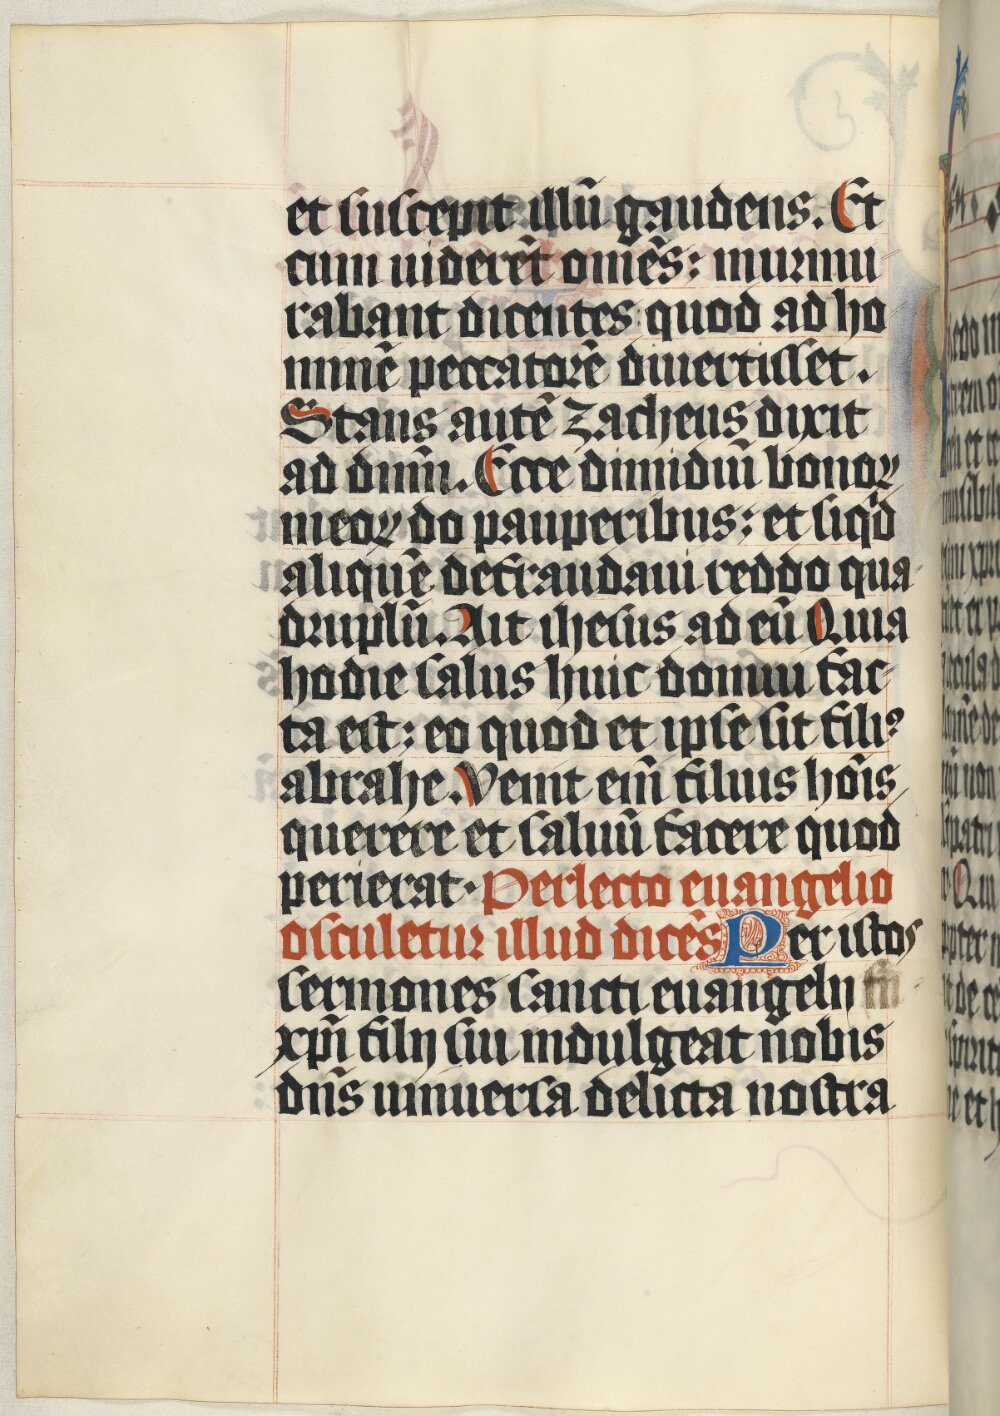 et suscepit illū gaudens. Et
cum uiderēt omēs: murmu
rabant dicentes quod ad ho
minē peccatorē diuertisset.
Stans autē zacheus dixit
ad dnm̄. Ecce dimidiū bonoꝝ
meoꝝ do pauperibus: et siqͥd
aliquē defraudaui reddo qua-
druplū. Ait ihesus ad eū Quia
hodie salus huic domui fac-
ta est: eo quod et ipse sit filiꝰ
abrahe. Venit em̄ filius hoīs
querere et saluū facere quod
perierat. Perlecto euangelio
osculetur illud dicēs Per istos
sermones sancti euangelij
xpī filij sui indulgeat nobis
dn̄s uniuersa delicta nostra